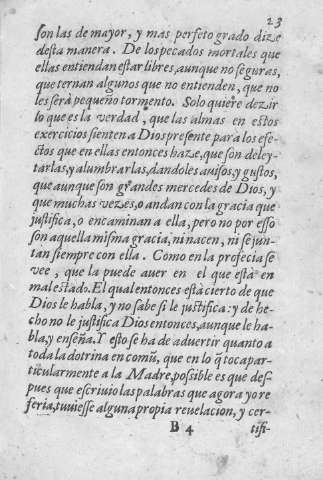 23
son las de mayor, y mas perfeto grado dize
desta manera. De los pecados mortales que
ellas entiendan estar libres, aunque no seguras,
que ternan algunos que no entienden, que no
les serà pequeño tormento. Solo quiere dezir
lo que es la verdad, que las almas en estos
exercicios sienten a Dios presente para los efe-
ctos que en ellas entonces haze, que son deley-
tarlas, y alumbrarlas, dandoles auisos, y gustos,
que aunque son grandes mercedes de Dios, y
que muchas vezes, o andan con la gracia que
justifica, o encaminan a ella, pero no por esso
son aquella misma gracia, ni nacen, ni se jun-
tan siempre con ella. Como en la profecia se
vee, que la puede auer en el que està en
mal estado. El qual entonces està cierto de que
Dios le habla, y no sabe si le justifica: y de he-
cho no le justifica Dios entonces, aunque le ha-
bla, y enseña. Y esto se ha de advertir quanto a
toda la dotrina en comũ, que en lo q̃ toca par-
ticularmente a la Madre, possible es que des-
pues que escriuio las palabras que agora yo re
feria, tuuiesse alguna propia reuelacion, y cer-
B 4 tifi-